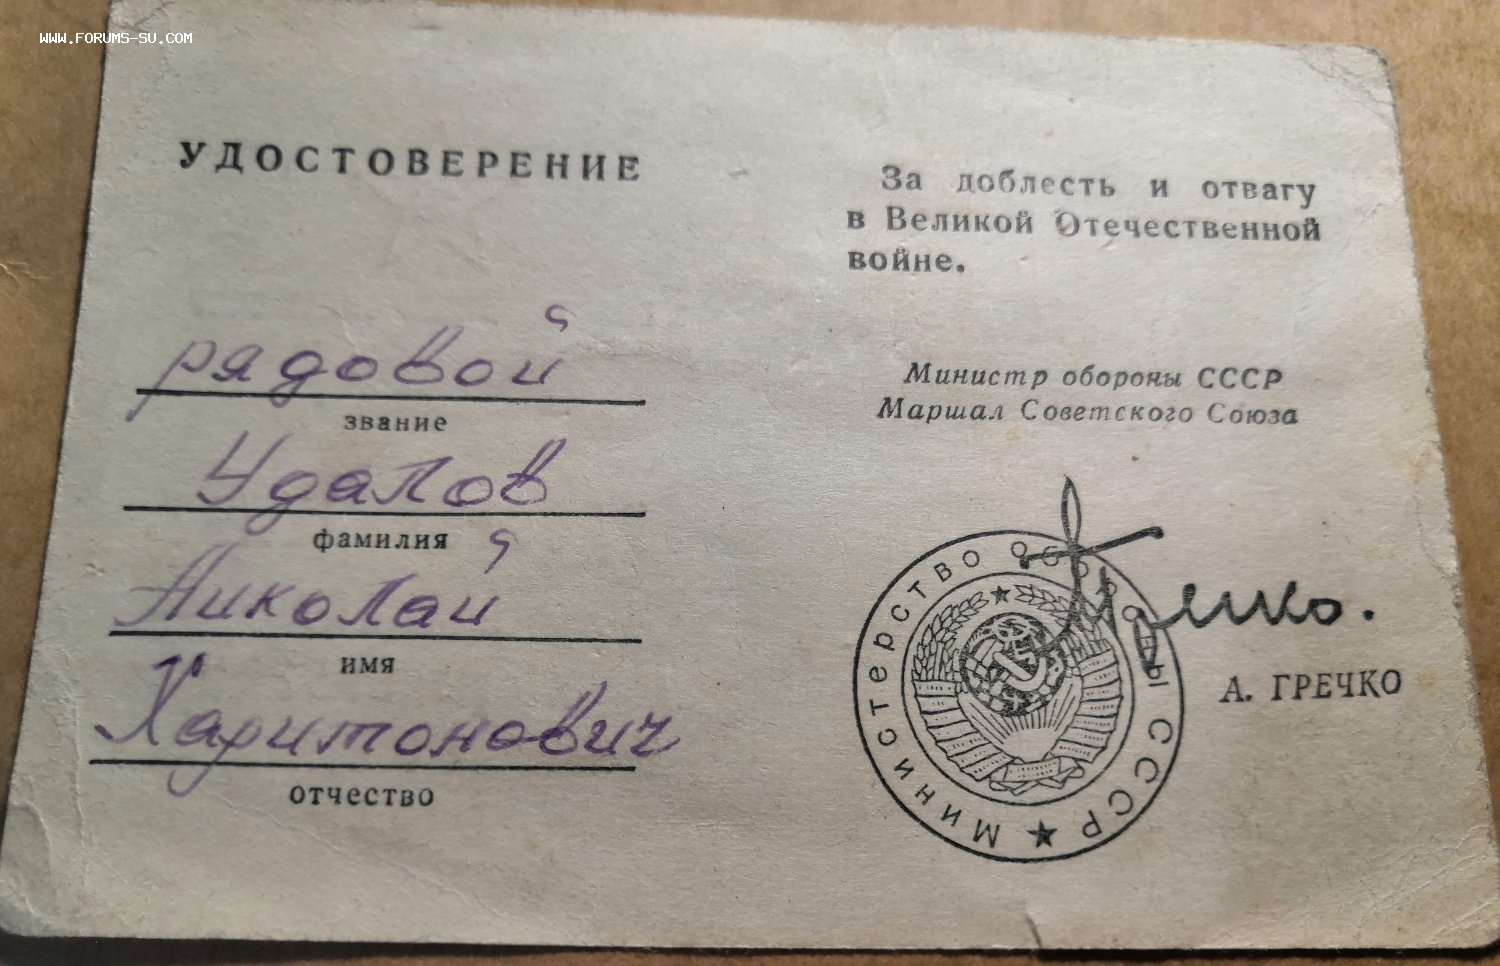 WWW.FORUMS-SU.COM
УДОСТОВЕРЕНИЕ
рядовой
звание
Удалов
фамилия
Николай
имя
Харитонович
отчество
За доблесть и отвагу
в Великой Отечественной
войне.
Министр обороны СССР
Маршал Советского Союза
МИНИСТЕРСТВО ОБОРОНЫ СССР
Гречко.
А. ГРЕЧКО